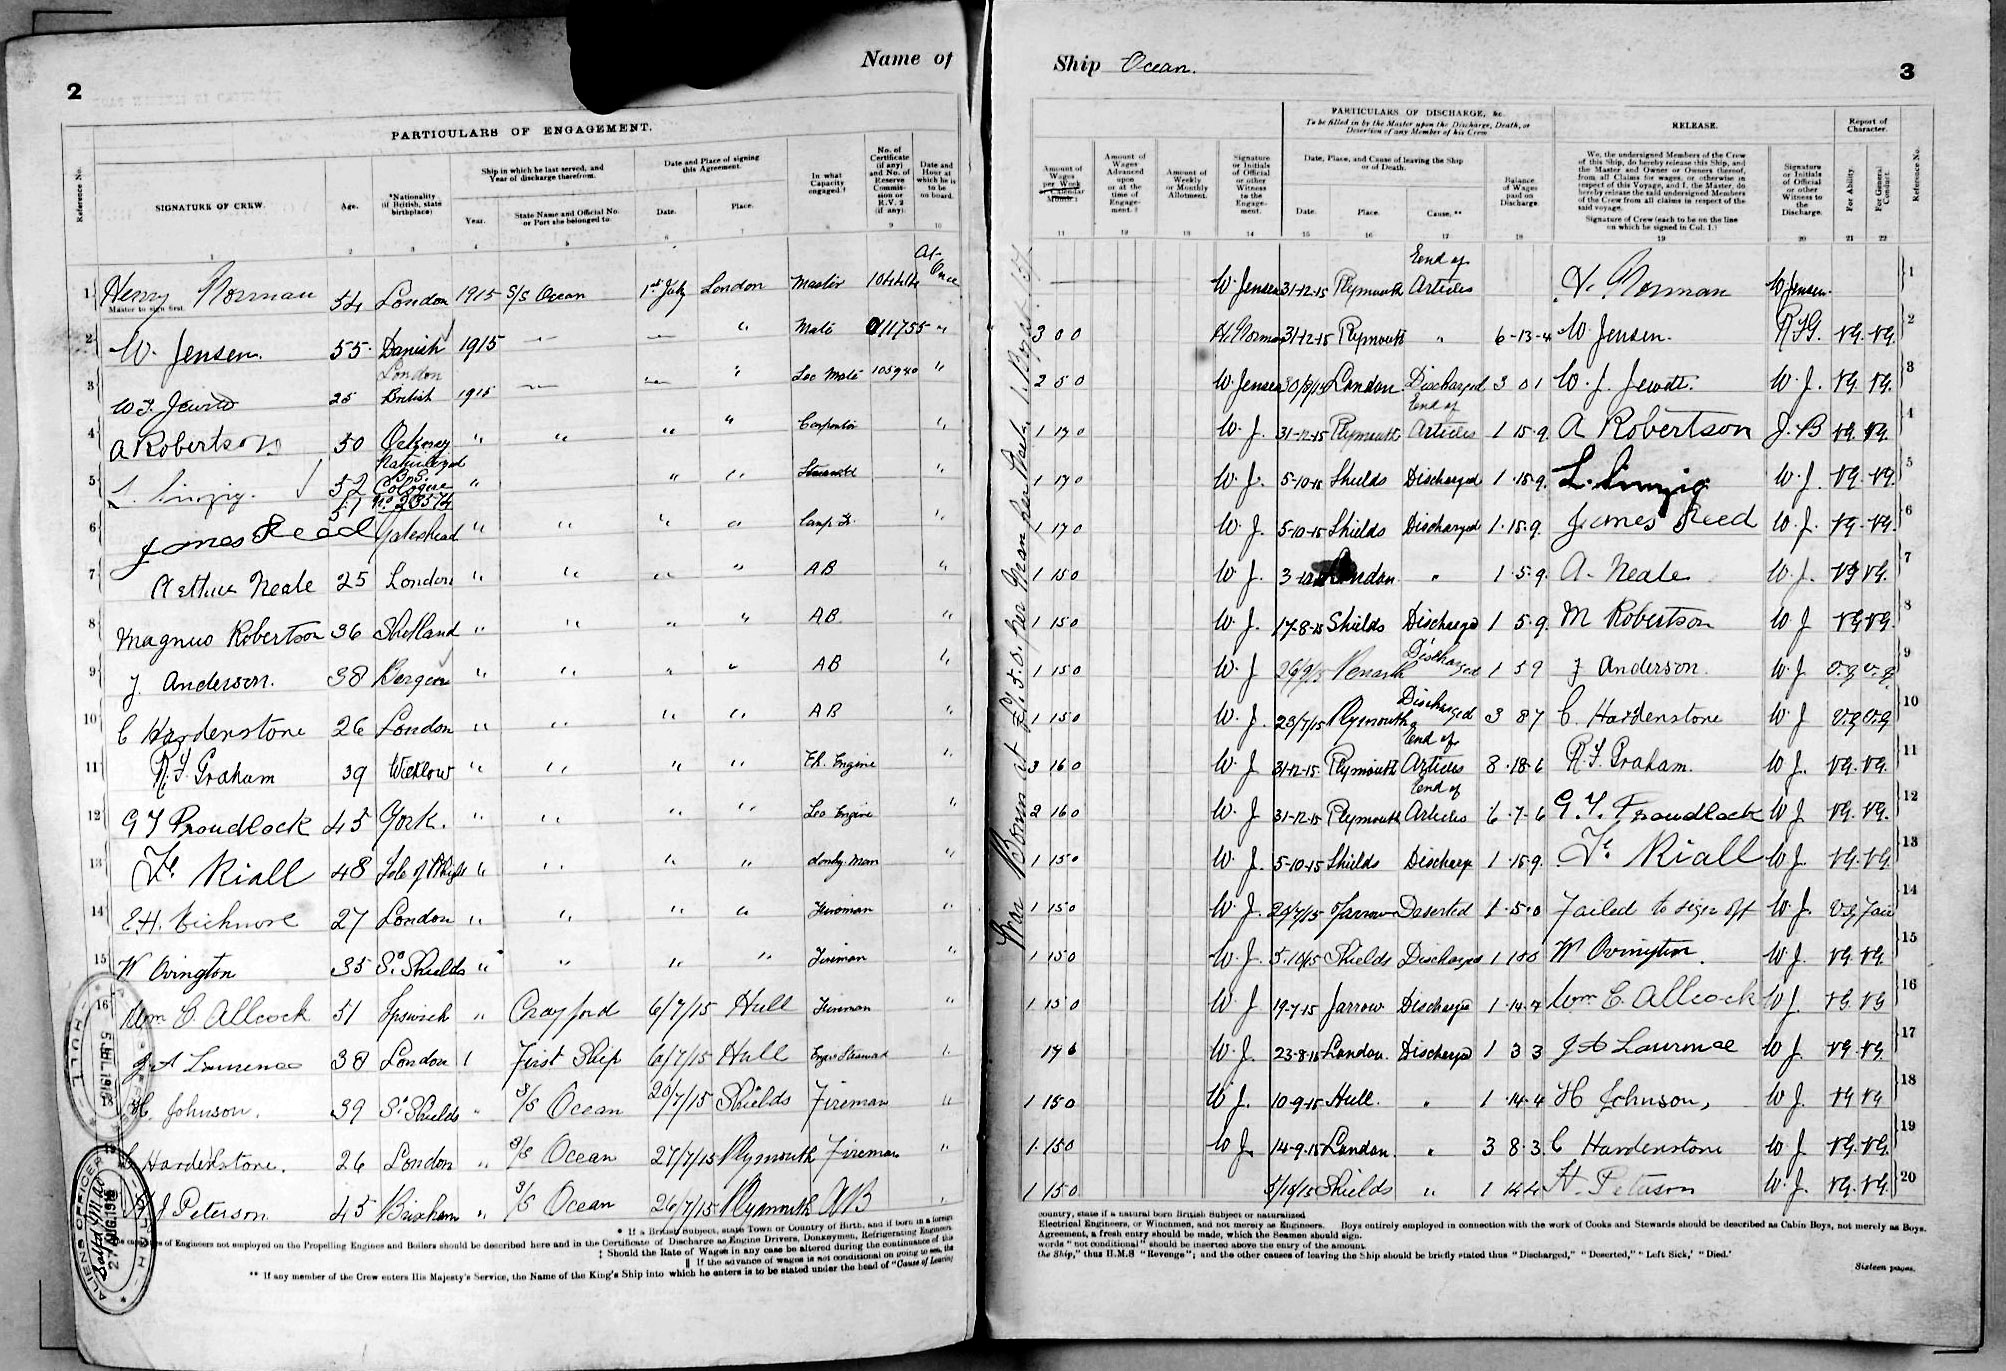 2
Name of
PARTICULARS OF ENGAGEMENT.
Reference No.
SIGNATURE OF CREW.
Age.
*Nationality (if British, state birthplace)
Ship in which he last served, and Year of discharge therefrom.
Year.
State Name and Official No. or Port she belonged to.
Date and Place of signing this Agreement.
Date.
Place.
In what Capacity engaged.†
No. of Certificate (if any) and No. of Reserve Commission or R.V. 2 (if any).
Date and Hour at which he is to be on board.
1 2 3 4 5 6 7 8 9 10
1 Henry Norman 54 London 1915 S/S Ocean 1st July London Master 104414 At Once
Master to sign first.
2 W. Jensen. 55 Danish 1915 — — " Mate 011755 "
3 W J Jewitt 25 London British 1915 — — " Sec Mate 105940 "
4 A Robertson 50 Orkney " " " " Carpenter "
5 L. Linzig. 52 Naturalized B.S. Cologne No 23574 " " " Steward "
6 James Reed 51 Gateshead " " " " "
7 Arthur Neale 25 London " " " " AB "
8 Magnus Robertson 36 Shetland " " " " AB "
9 J. Anderson. 38 Bergen " " " " AB "
10 C Hardenstone 26 London " " " " AB "
11 R. J. Graham 39 Wicklow " " " " Ch. Engine "
12 G T Proudlock 45 York. " " " " Sec Engine "
13 Riall 48 Isle of Wight " " " " Donky-man "
14 E.H. 27 London " " " " Fireman "
15 W Ovington 35 So Shields " " " " Fireman "
16 Wm C. Allcock 51 Ipswich " Crayford 6/7/15 Hull Fireman "
J A Laurence 38 London First Ship 6/7/15 Hull Steward "
H. Johnson. 39 So Shields " S/S Ocean 20/7/15 Shields Fireman "
C Hardenstone. 26 London " S/S Ocean 27/7/15 Plymouth Fireman "
J Peterson 45 Brixham " S/S Ocean 26/7/15 Plymouth AB "
HULL
5 JUL 1915
ALIENS OFFICER
2 AUG. 1915
* If a British Subject, state Town or Country of Birth, and if born in a foreign
of Engineers not employed on the Propelling Engines and Boilers should be described here and in the Certificate of Discharge as Engine Drivers, Donkeymen, Refrigerating Engineers,
‡ Should the Rate of Wages in any case be altered during the continuance of this
‖ If the advance of wages is not conditional on going to sea, the
** If any member of the Crew enters His Majesty's Service, the Name of the King's Ship into which he enters is to be stated under the head of "Cause of Leaving
Ship Ocean.
3
PARTICULARS OF DISCHARGE, &c.
To be filled in by the Master upon the Discharge, Death, or Desertion of any Member of his Crew
RELEASE.
Report of Character.
Amount of Wages per Week or Calendar Month.‡
Amount of Wages Advanced upon or at the time of Engagement.‖
Amount of Weekly or Monthly Allotment.
Signature or Initials of Official or other Witness to the Engagement.
Date, Place, and Cause of leaving the Ship or of Death.
Date.
Place.
Cause.**
Balance of Wages paid on Discharge.
We, the undersigned Members of the Crew of this Ship, do hereby release this Ship, and the Master and Owner or Owners thereof, from all Claims for wages, or otherwise in respect of this Voyage, and I, the Master, do hereby release the said undersigned Members of the Crew from all claims in respect of the said voyage.
Signature of Crew (each to be on the line on which he signed in Col. 1.)
Signature or Initials of Official or other Witness to the Discharge.
For Ability.
For General Conduct.
Reference No.
11 12 13 14 15 16 17 18 19 20 21 22
War Bonus at per Man per Week
W. Jensen 31-12-15 Plymouth End of Articles H. Norman W Jensen 1
3 0 0 H. Norman 31-12-15 Plymouth " 6-13-4 W Jensen. V.G. V.G. 2
2 5 0 W Jensen London Discharged 3 0 1 W. J. Jewitt. W. J. V.G. V.G. 3
1 17 0 W. J. 31-12-15 Plymouth End of Articles 1 15 9. A Robertson J. B V.G. V.G. 4
1 17 0 W. J. 5-10-15 Shields Discharged 1 15 9. L. Linzig W. J. V.G. V.G. 5
1 17 0 W. J. 5-10-15 Shields Discharged 1-15-9. James Reed W. J. V.G. V.G. 6
1 15 0 W. J. London. " 1 5 9. A. Neale W. J. V.G. V.G. 7
1 15 0 W. J. 17-8-15 Shields Discharged 1 5 9. M Robertson W J V.G. V.G. 8
1 15 0 W. J 26/9/15 Penarth Discharged 1 5 9 J Anderson. W. J v.g v.g 9
1 15 0 W. J. 23/7/15 Plymouth Discharged 3 8 7 C. Hardenstone W J v.g v.g 10
3 16 0 W. J 31-12-15. Plymouth End of Articles 8-18-6 R. J. Graham. W J. V.G. V.G. 11
2 16 0 W. J 31-12-15 Plymouth End of Articles 6-7-6 G. T. Proudlock W J. V.G. V.G. 12
1 15 0 W J 5-10-15 Shields Discharge 1-15-9. Riall W J. V.G. V.G. 13
1 15 0 W. J. 29/7/15 Jarrow Deserted 1-5-0 Failed to sign off W. J. V.G Fair 14
1 15 0 W. J. 5-10/15 Shields Discharged W Ovington. W J. V.G. V.G. 15
1 15 0 W. J 19-7-15 Jarrow Discharged 1-14-7 Wm C. Allcock W J. V.G. V.G 16
17 6 W. J. 23-8-15 London. Discharged 1 3 3 J A Laurence W J. V.G. V.G. 17
1 15 0 W J. 10-9-15 Hull. " 1-14-4 H Johnson, W J. V.G. V.G. 18
1-15 0 W J. 14-9-15 London. " 3 8-3. C Hardenstone W J. V.G. V.G. 19
1 15 0 5/10/15 Shields " 1 14 4 H. Peterson W. J. V.G. V.G. 20
country, state if a natural born British Subject or naturalized
Electrical Engineers, or Winchmen, and not merely as Engineers. Boys entirely employed in connection with the work of Cooks and Stewards should be described as Cabin Boys, not merely as Boys.
Agreement, a fresh entry should be made, which the Seamen should sign.
words "not conditional" should be inserted above the entry of the amount.
the Ship," thus H.M.S "Revenge"; and the other causes of leaving the Ship should be briefly stated thus "Discharged," "Deserted," "Left Sick,' 'Died.'
Sixteen pages.